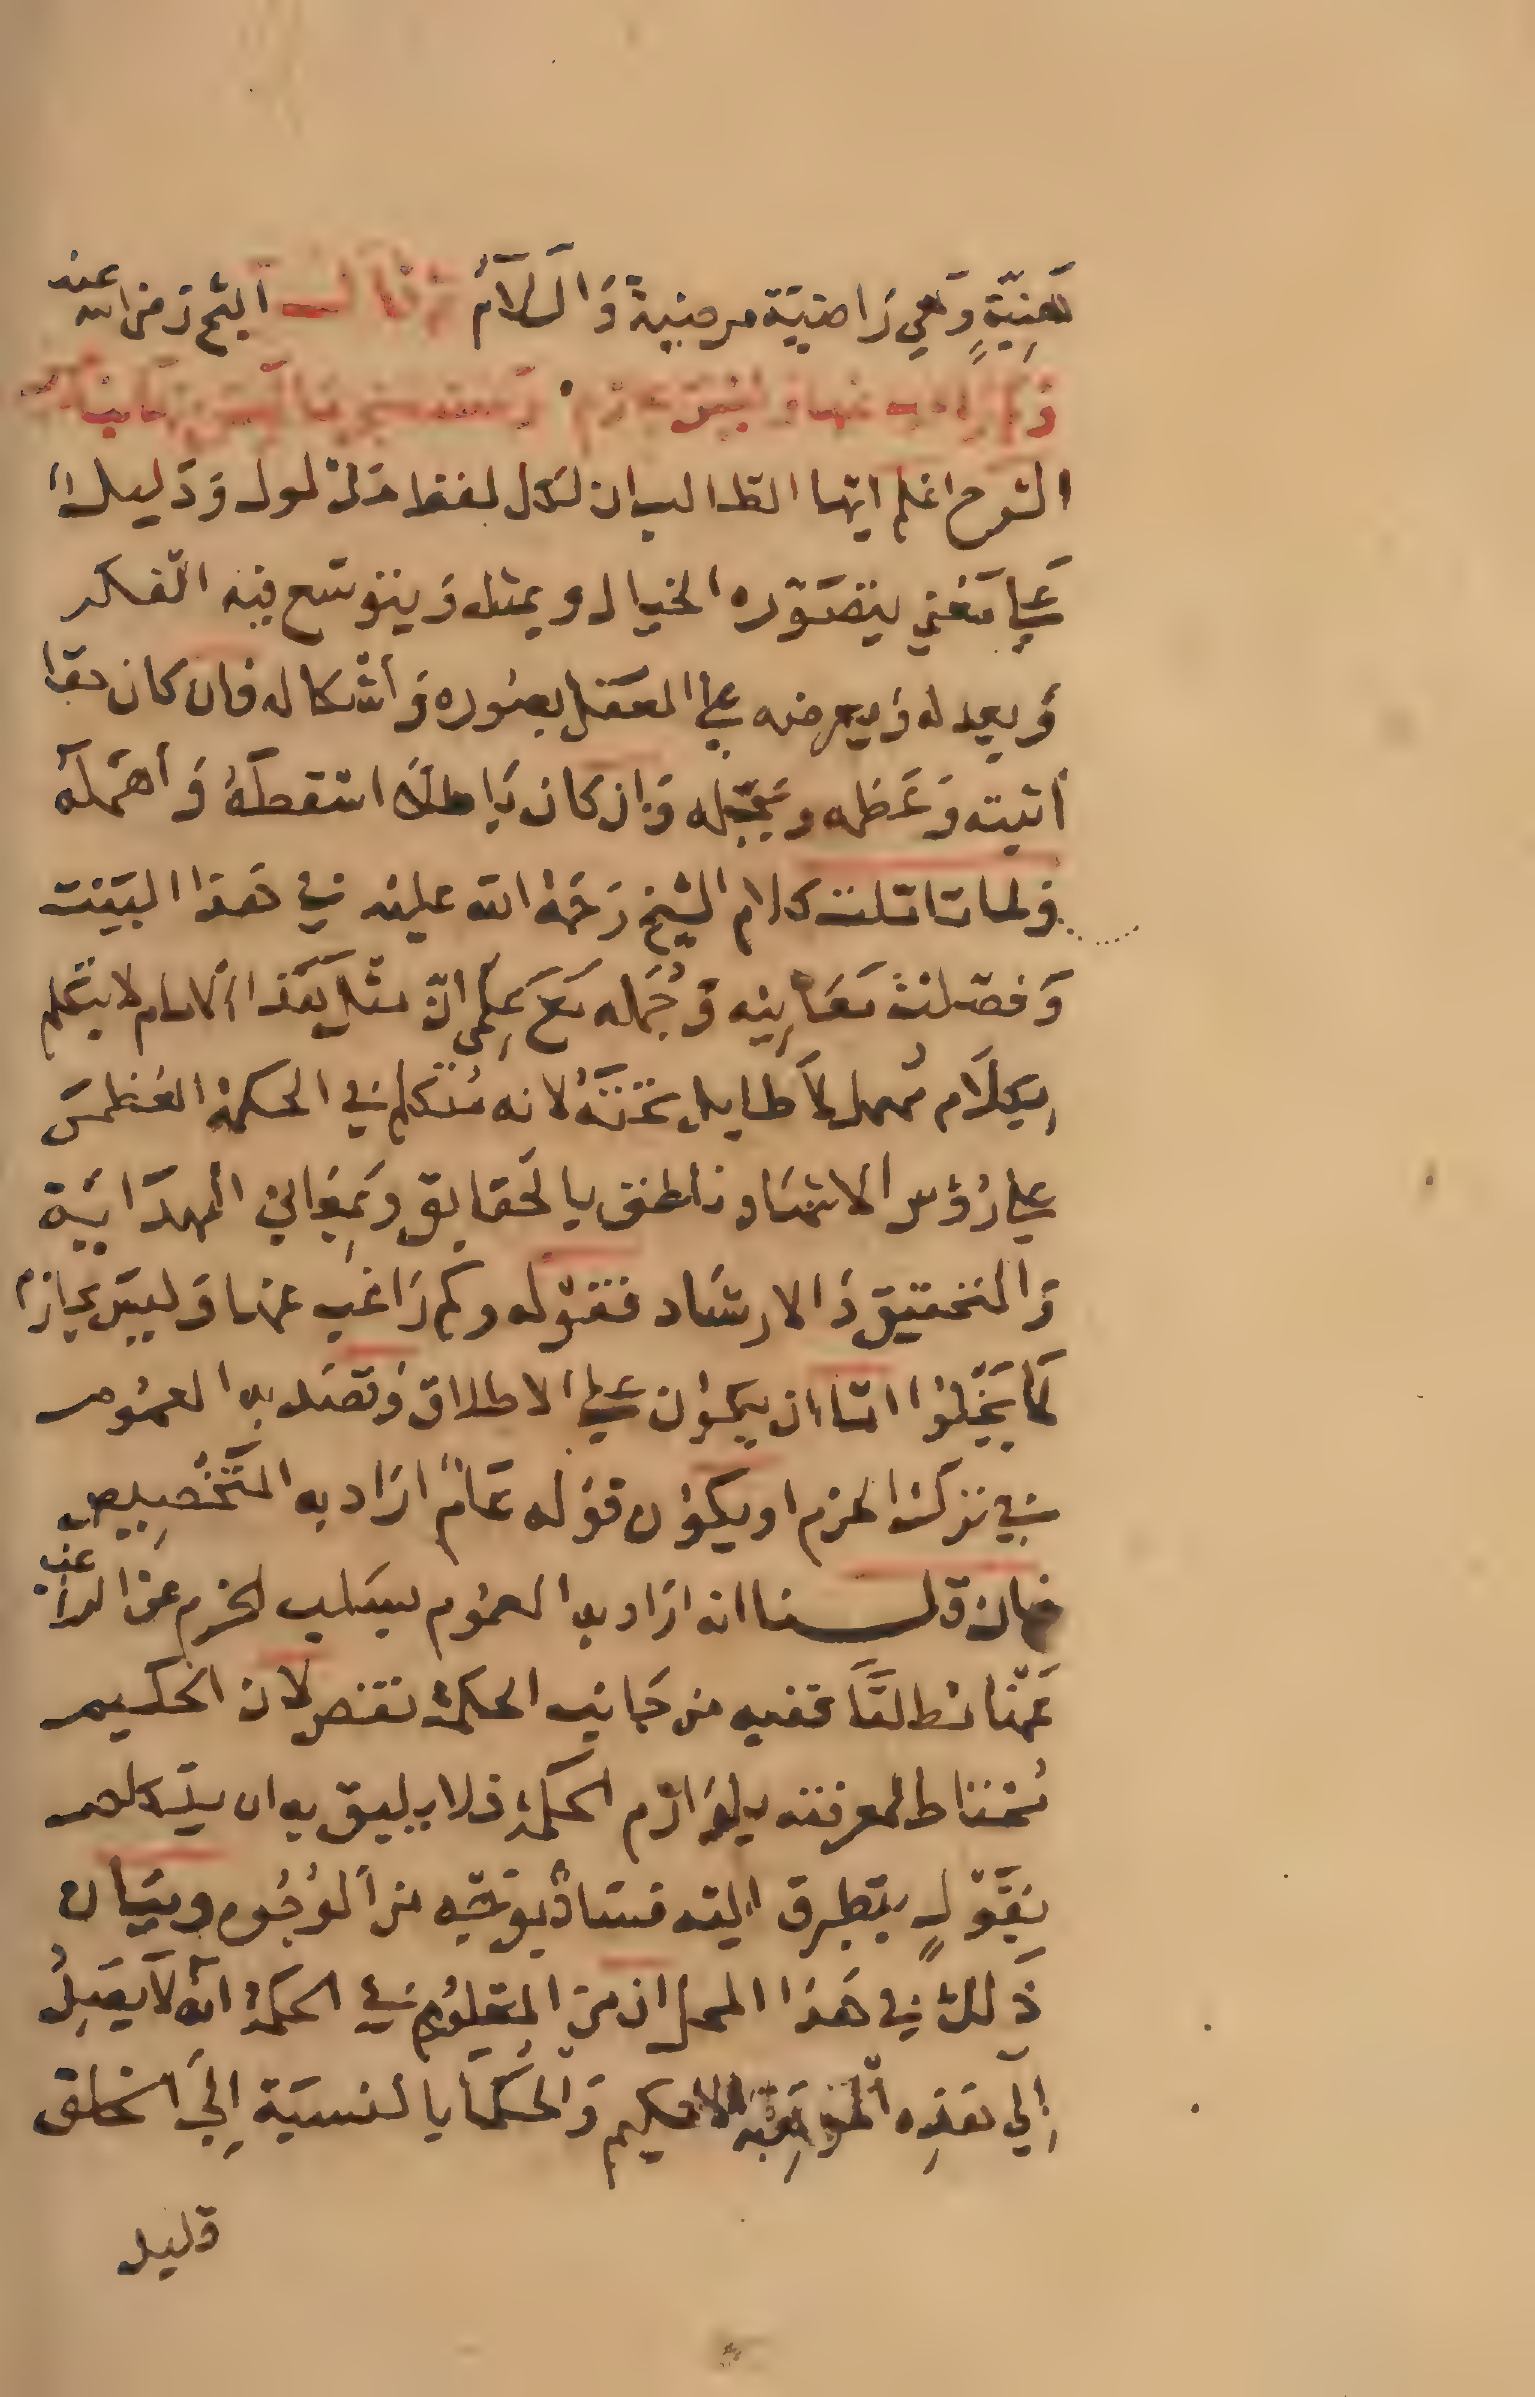 هَنِيّةٍ وَهي رَاضيَة مرضية وَالسَّلامُ وقال الشيخ رَضي الله عنه
وَكم رَاغب عنها وليسَ بحازم
الشرح اعلم ايّها الطالب ان لكل لفظ مدلول وَدَليلا
عَلى مَعني يتصَوّره الخيال ويمثله وَيتوسّع فيه الفكر
وَيعدله وَيعرضه على العَقل بصُوره وَأشكاله فان كان حقا
أثبته وَعَظمه وبَجّله وَان كان بَاطلًا اسْقطَهُ وَأهْمَلَه
وَلما تاملت كلام الشيخ رَحمَة الله عليه في هَذا البَيْت
وَفصّلت مَعَانِيْه وَجُمَله مَعَ عِلمي انّ مثل هَذا الامام لا يتكلم
بِكلَام مُهمل لَا طايل تحْتَهُ لانه مُتكلم في الحكمة العُظمىَ
على رُؤس الاشهَاد ناطق بالحَقايق وَبمِعَاني الهدَايَة
وَالتحقيق وَالارشاد فقوْله وكم رَاغب عنها وَليسَ بحازم
لَا يَخْلُوا امّا ان يكوْن عَلى الاطلاق وَقصَد به العمُوم
في ترك الحزم او يكوْن قوْله عَامًّ ارَاد به التَّخْصِيص
فان قلنا انه ارَاد به العمُوم بسَلب الحزم عن الراغب
عَنْهَا مُطلقًا ففيه من جَانب الحكمة نقص لان الحكيم
مُحْتاط لمعرفته بلوَازم الحكمة فلا يليق به ان يتَكلم
بقَوْلٍ يتطرق اليْه فسَادٌ بوَجْه من الوُجُوه وبيَان
ذَلك في هَذا المحل ان من المعْلوُم في الحكمة انّه لَا يَصِلُ
إلي هَذِه المَوهِبَة الا حكيم وَالحُكمَا بالنسبَة إلى الخلق
قليل